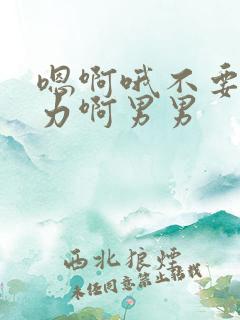 嗯啊哦不要
力啊男男
西北狼煙
未经同意禁止转载